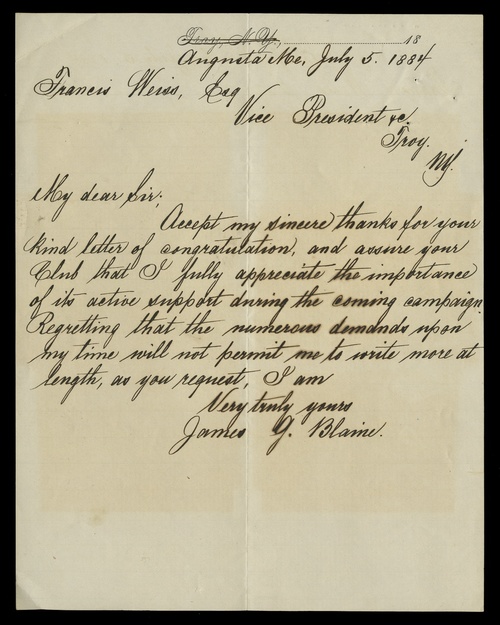 Troy, N.Y. 18
Augusta Me, July 5. 1884
Francis Weiss, Esq
Vice President &c.
Troy.
NY.
My dear Sir:
Accept my sincere thanks for your
kind letter of congratulation, and assure your
Club that I fully appreciate the importance
of its active support during the coming campaign.
Regretting that the numerous demands upon
my time will not permit me to write more at
length, as you request, I am
Very truly yours
James G. Blaine.